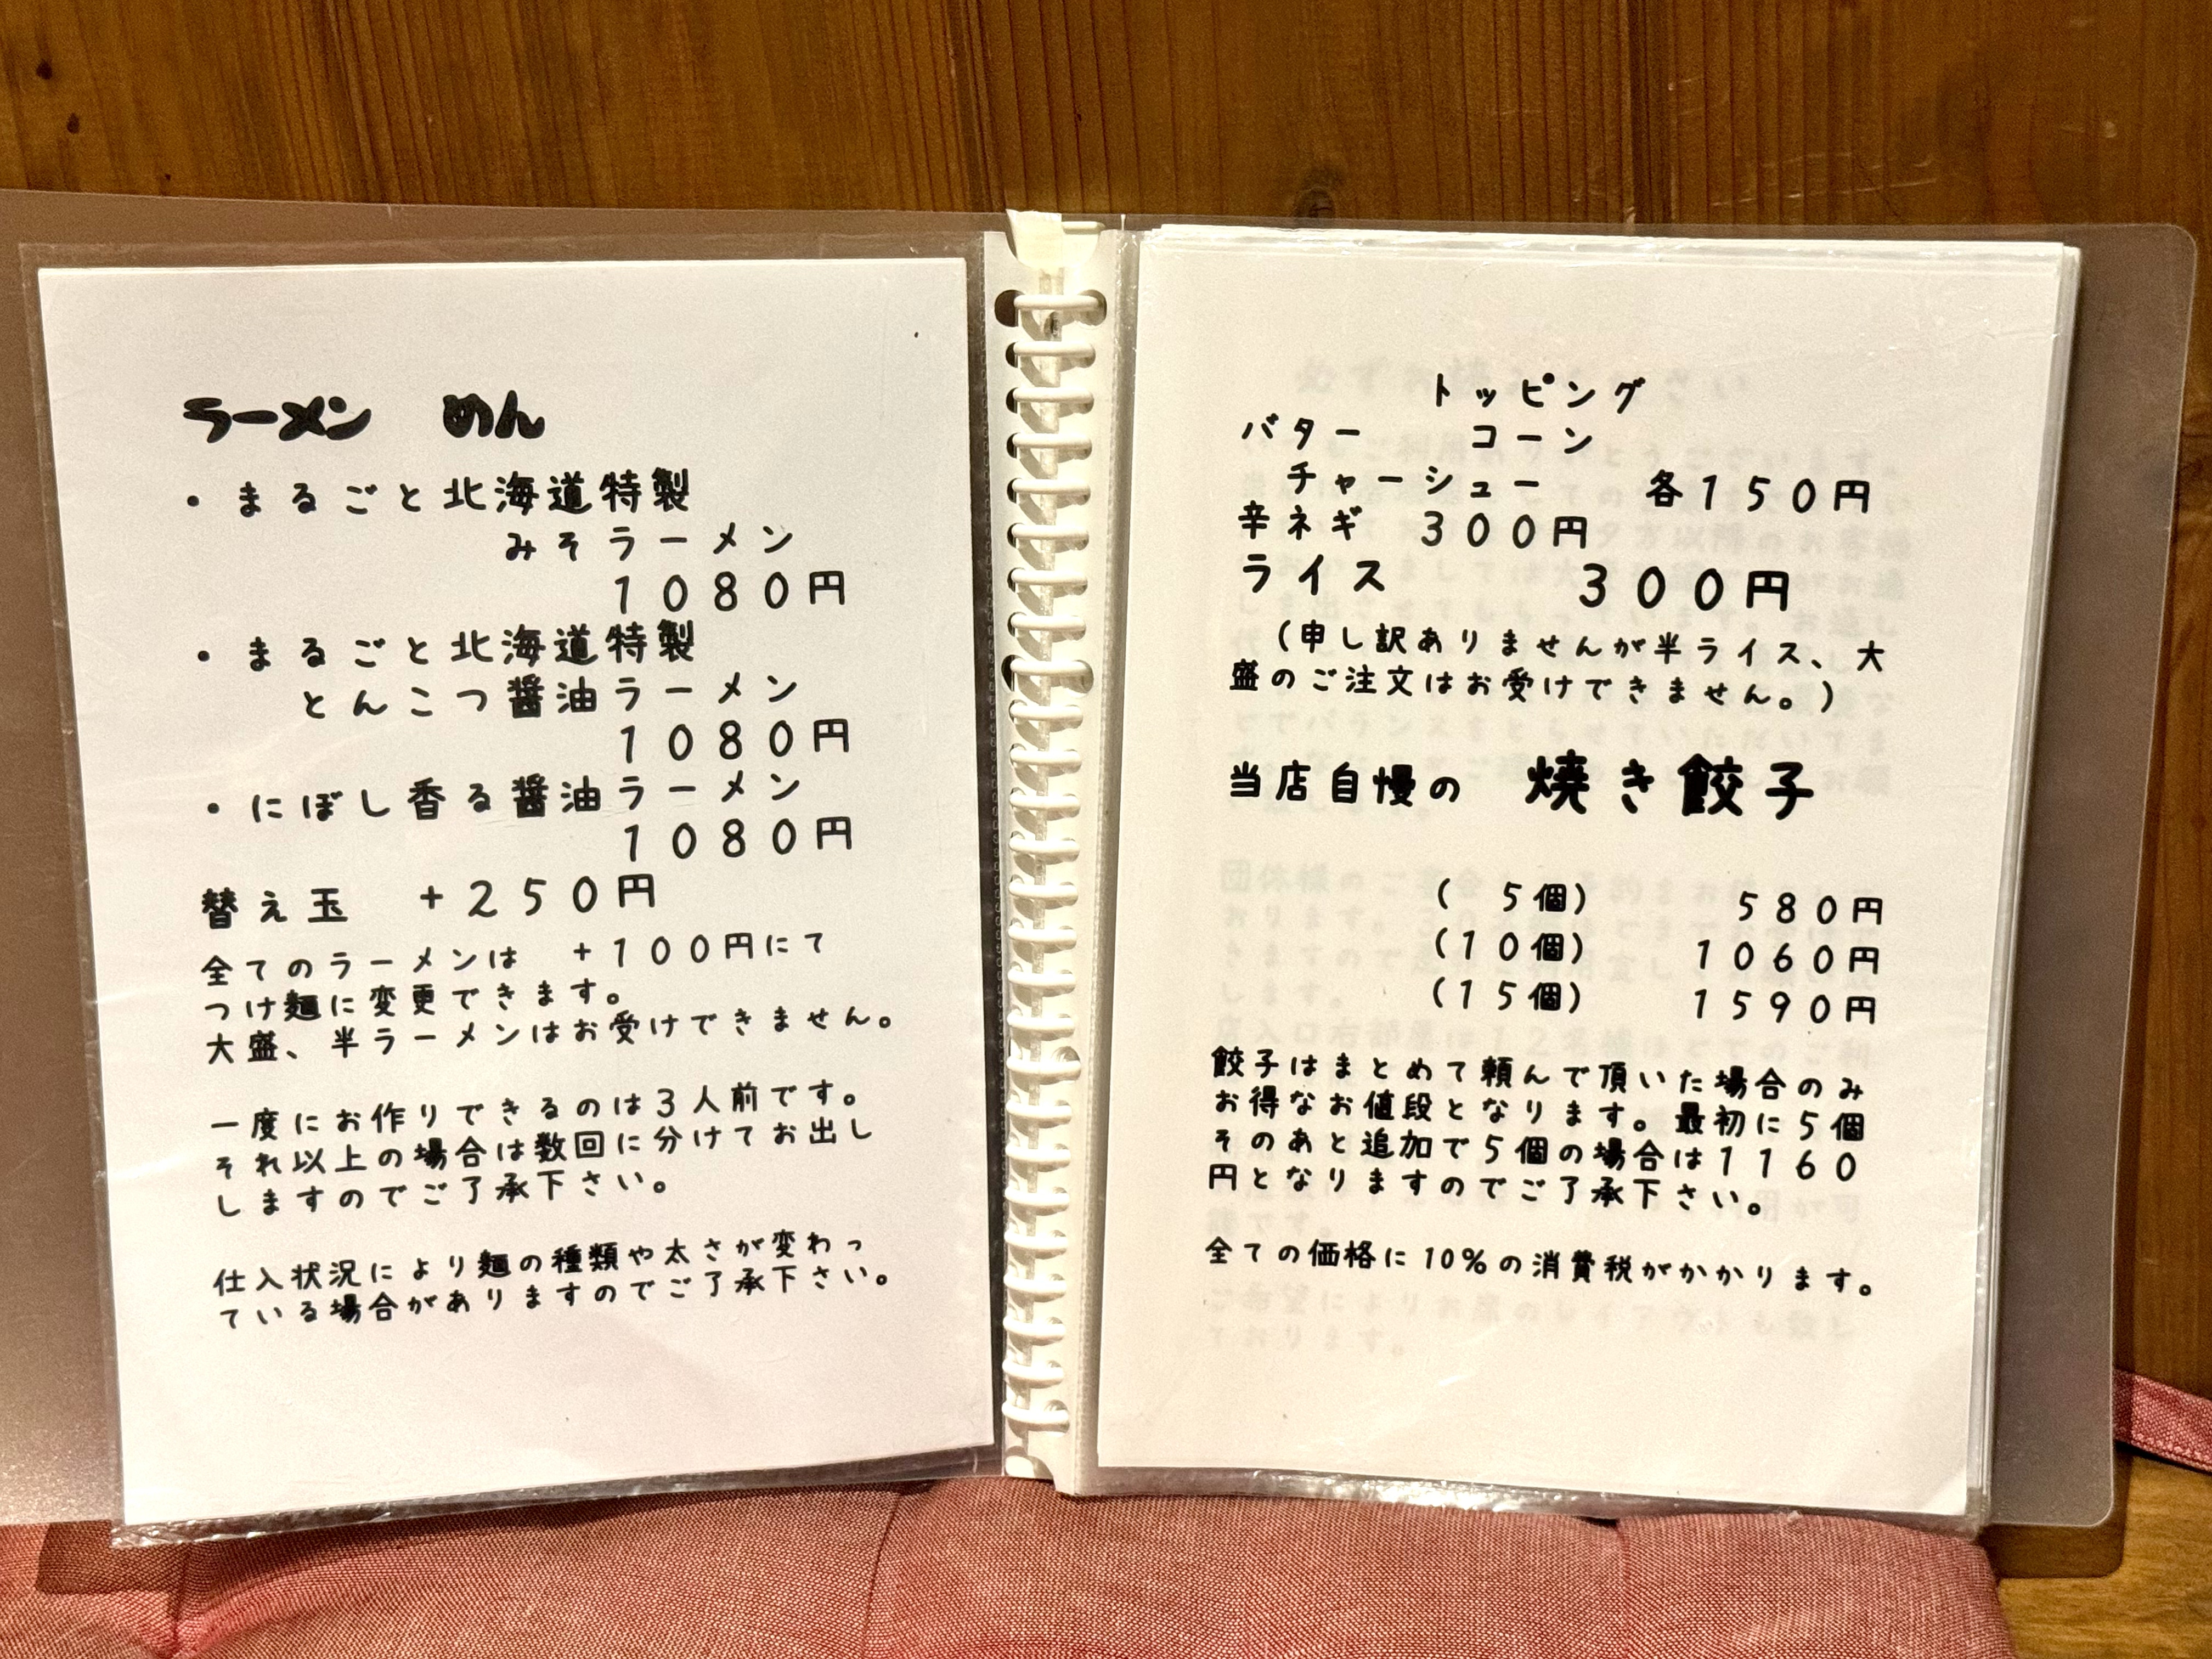 ラーメン　めん
・まるごと北海道特製
みそラーメン
１０８０円
・まるごと北海道特製
とんこつ醤油ラーメン
１０８０円
・にぼし香る醤油ラーメン
１０８０円
替え玉　＋２５０円
全てのラーメンは　＋１００円にて
つけ麺に変更できます。
大盛、半ラーメンはお受けできません。
一度にお作りできるのは３人前です。
それ以上の場合は数回に分けてお出し
しますのでご了承下さい。
仕入状況により麺の種類や太さが変わっ
ている場合がありますのでご了承下さい。
トッピング
バター　　コーン
チャーシュー　　各１５０円
辛ネギ　３００円
ライス　　　３００円
（申し訳ありませんが半ライス、大
盛のご注文はお受けできません。）
当店自慢の　焼き餃子
（　５個）　　５８０円
（１０個）　　１０６０円
（１５個）　　１５９０円
餃子はまとめて頼んで頂いた場合のみ
お得なお値段となります。最初に５個
そのあと追加で５個の場合は１１６０
円となりますのでご了承下さい。
全ての価格に10％の消費税がかかります。